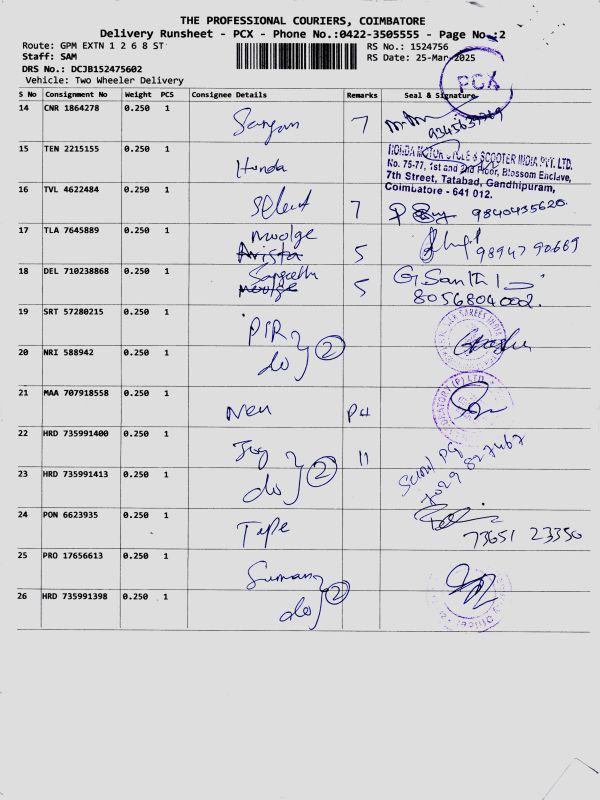 THE PROFESSIONAL COURIERS, COIMBATORE
Delivery Runsheet - PCX - Phone No.:0422-3505555 - Page No.:2
Route: GPM EXTN 1 2 6 8 ST
RS No.: 1524756
Staff: SAM
RS Date: 25-Mar-2025
DRS No.: DCJB152475602
Vehicle: Two Wheeler Delivery
PCX
S No Consignment No Weight PCS Consignee Details Remarks Seal & Signature
14 CNR 1864278 0.250 1 7
15 TEN 2215155 0.250 1 Honda
HONDA MOTOR CYCLE & SCOOTER INDIA PVT. LTD.
No. 75-77, 1st and 2nd Floor, Blossom Enclave,
7th Street, Tatabad, Gandhipuram,
Coimbatore - 641 012.
16 TVL 4622484 0.250 1 Select 7 9840435620
17 TLA 7645889 0.250 1 Moolge 5 98947 90669
Arista
18 DEL 710238868 0.250 1 Sangeetha 5 G. Santhi
Moolge 8056804002.
19 SRT 57280215 0.250 1 PIR
20 NRI 588942 0.250 1 do 2
21 MAA 707918558 0.250 1 Neu P4
22 HRD 735991400 0.250 1 11
23 HRD 735991413 0.250 1 do 2
24 PON 6623935 0.250 1 Tape
73651 23350
25 PRO 17656613 0.250 1 Suman
26 HRD 735991398 0.250 1 do 2